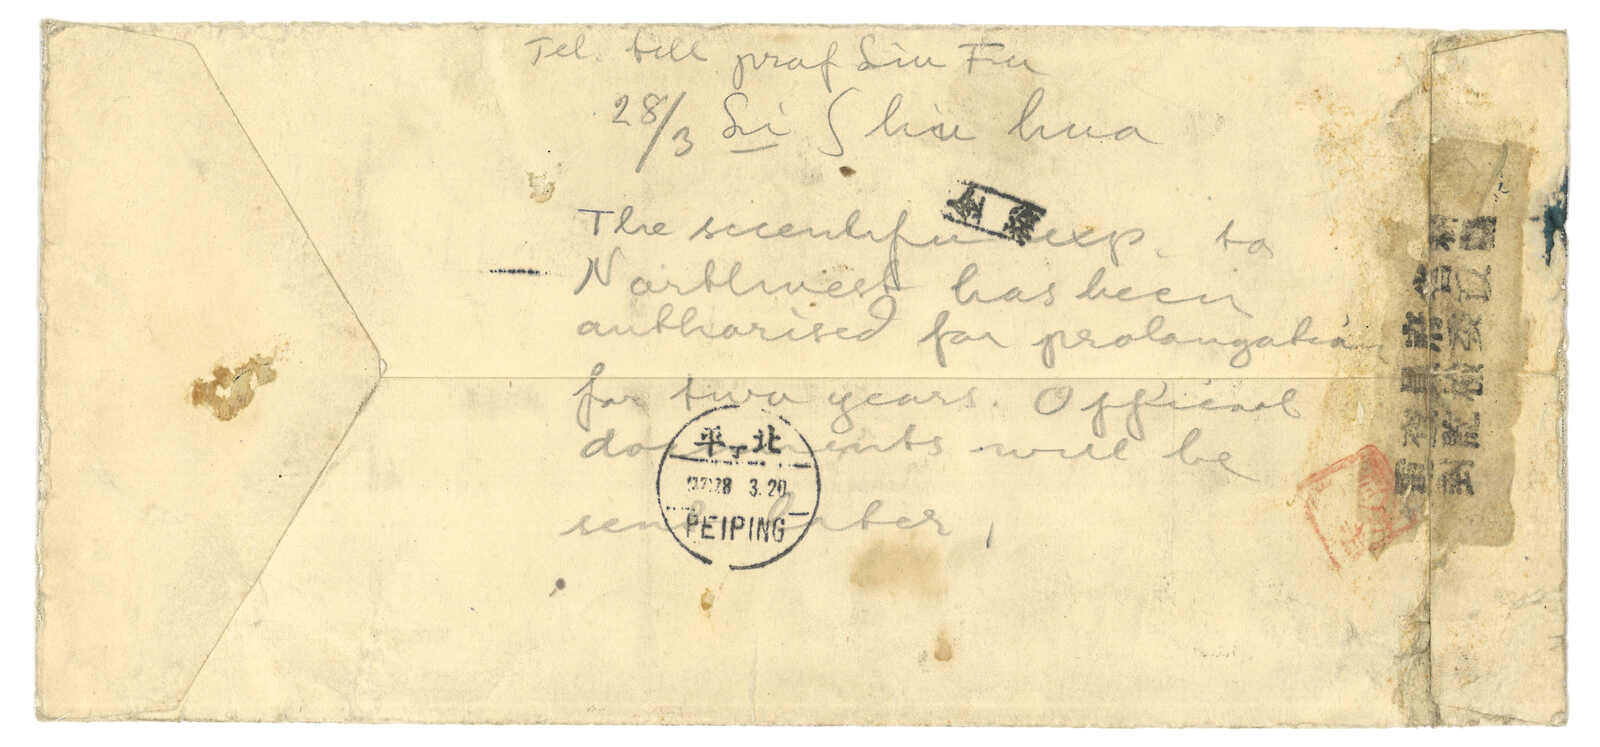 Tel. till prof Liu Fu
28/3 Li Shiu hua
The scientific exp. to
Northwest has been
authorised for prolongation
for two years. Official
documents will be
sent later,
平 北
3.20
PEIPING